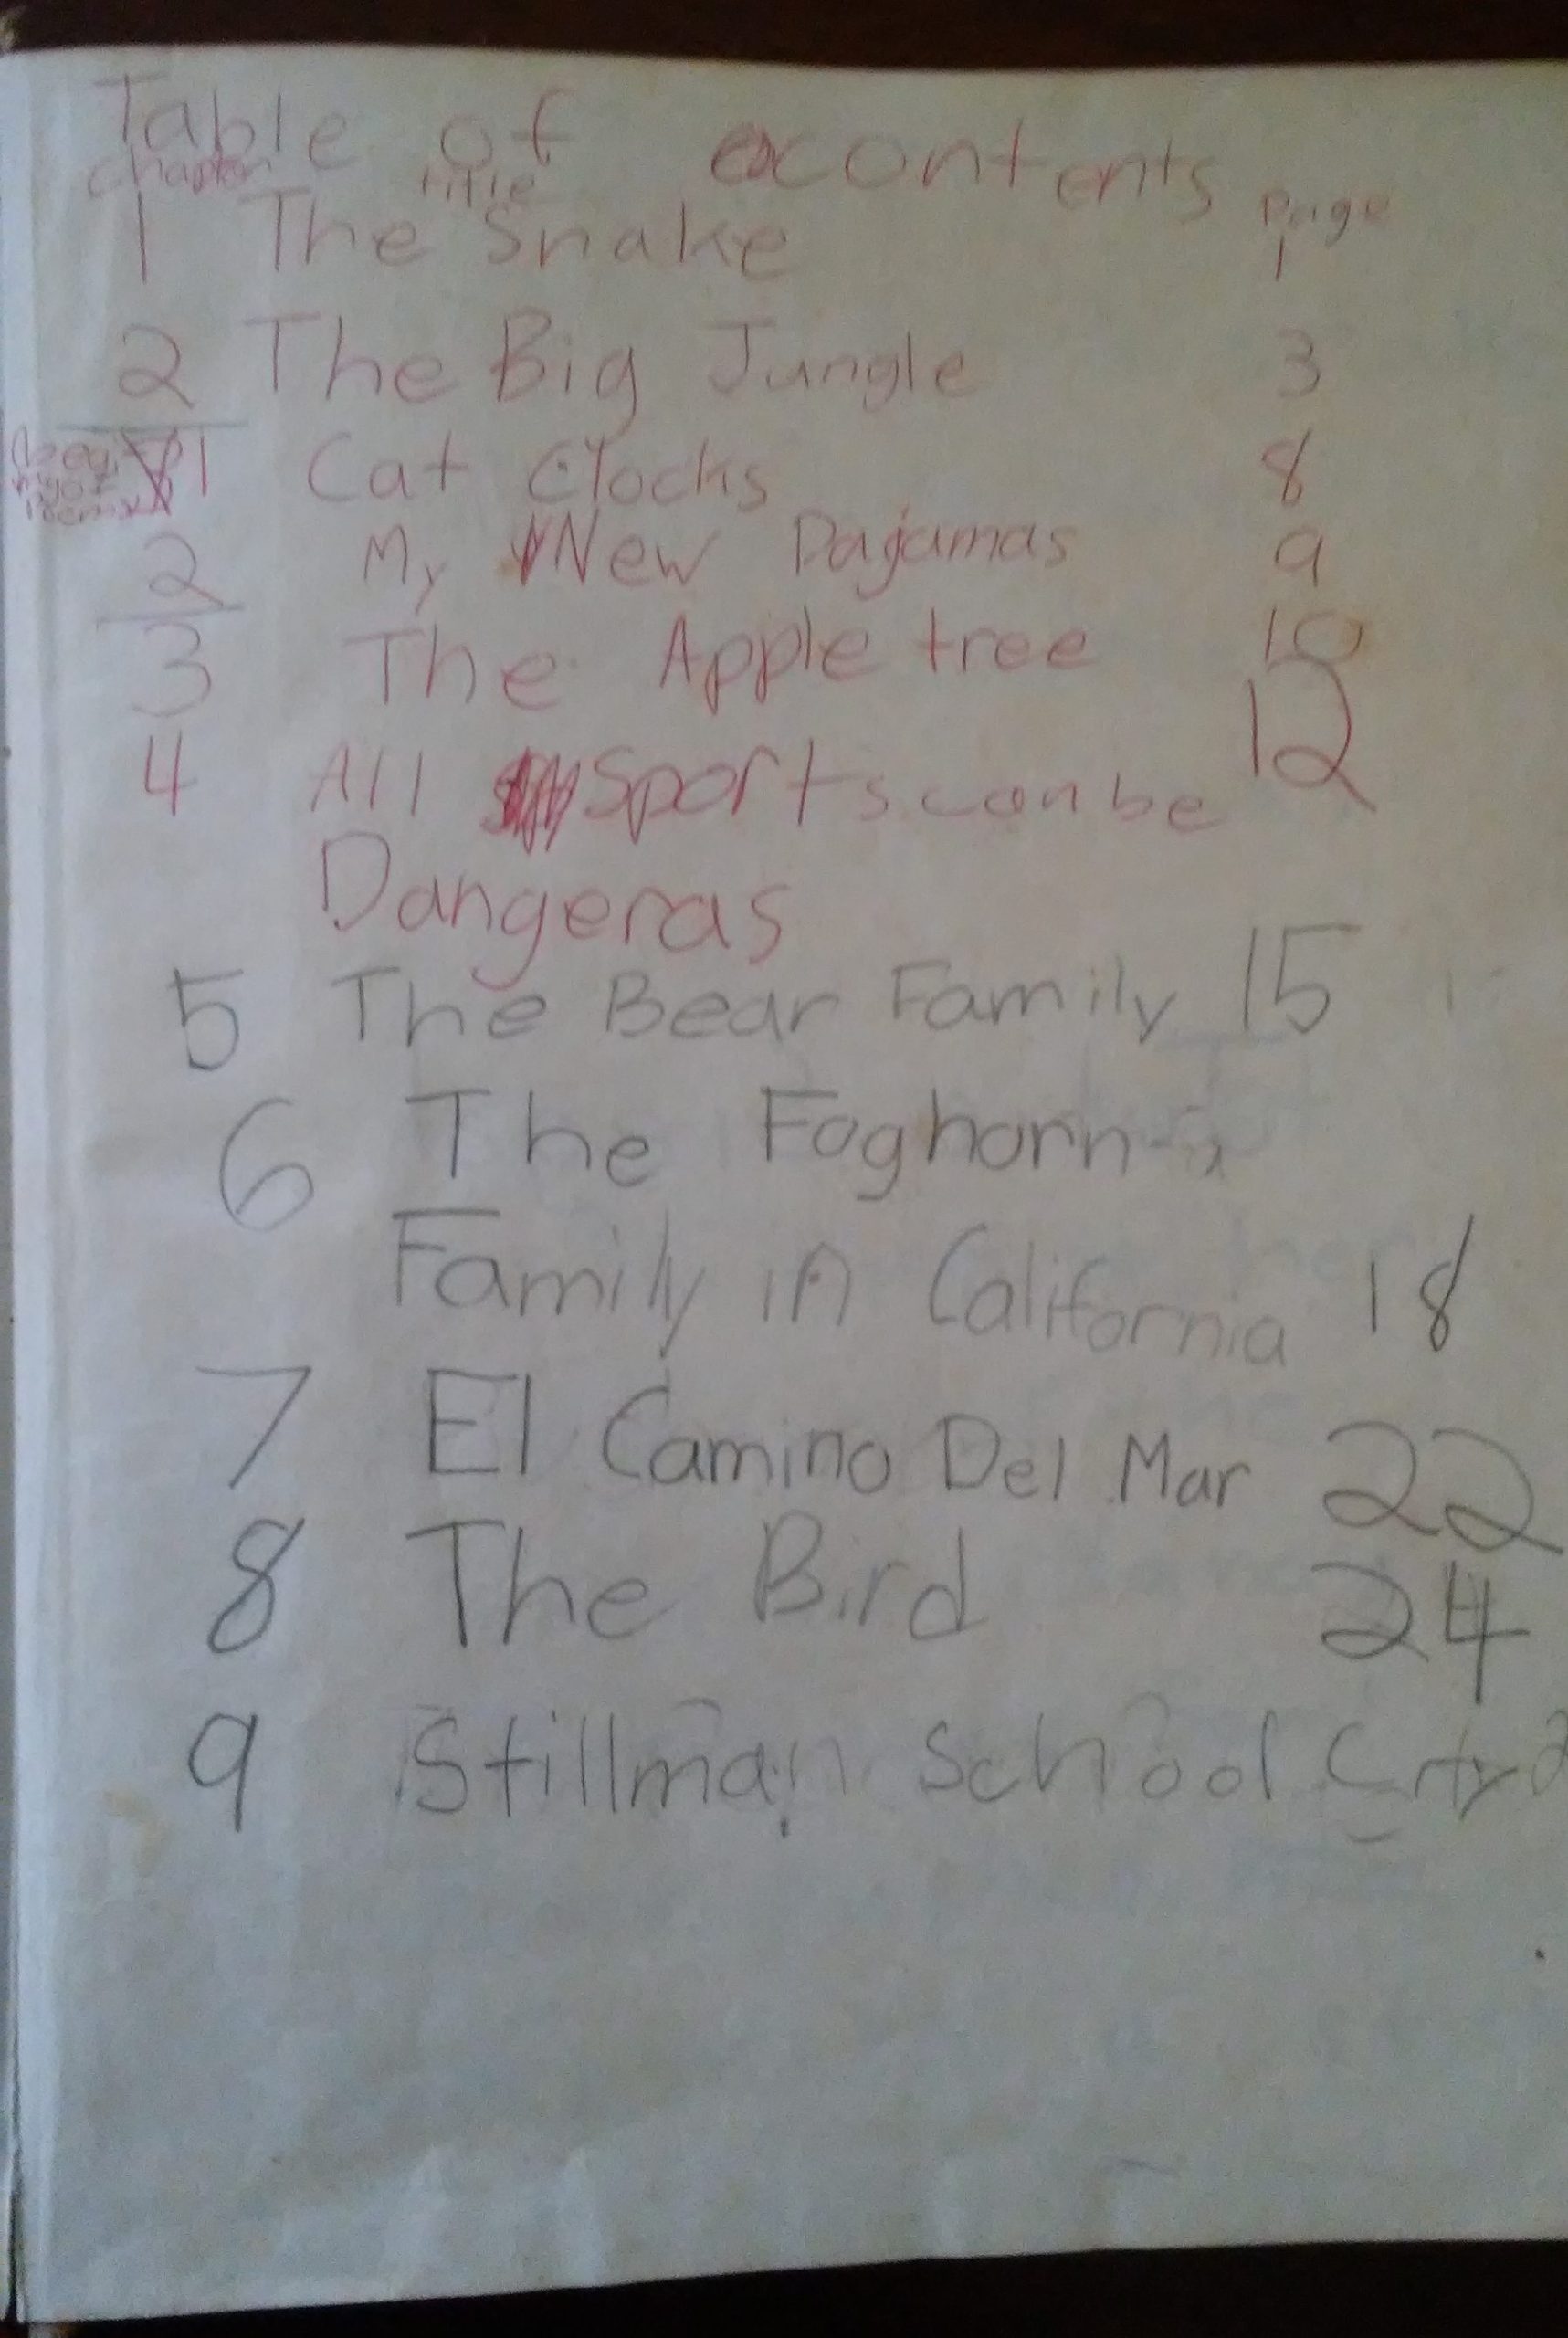 Table of contents
chapter title page
1 The Snake 1
2 The Big Jungle 3
1 Cat Clocks 8
2 My New Pajamas 9
3 The Apple tree 10
4 All Sports can be 12
Dangeras
5 The Bear Family 15
6 The Foghorn
Family in California 18
7 El Camino Del Mar 22
8 The Bird 24
9 Stillman School